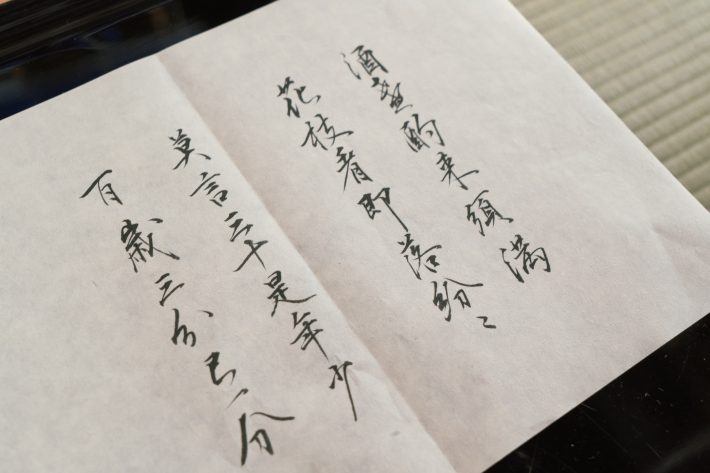 酒盞酌来須満
花枝看即落紛〻
莫言三十是年少
百歳三分已一分